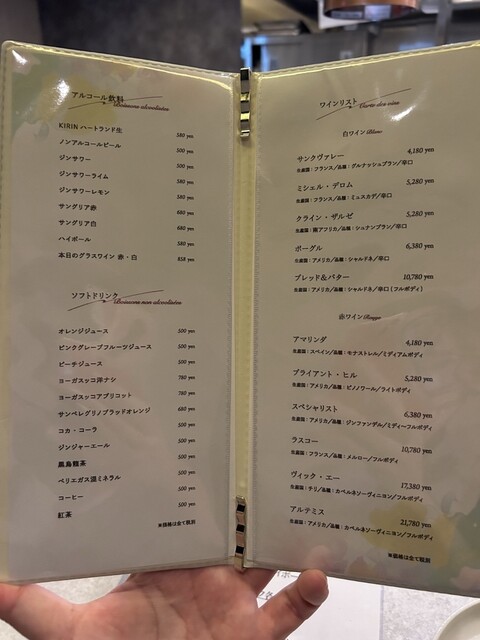 アルコール飲料
Boissons alcoolisées
KIRIN ハートランド生 580 yen
ノンアルコールビール 500 yen
ジンサワー 580 yen
ジンサワーライム 580 yen
ジンサワーレモン 580 yen
サングリア赤 680 yen
サングリア白 680 yen
ハイボール 580 yen
本日のグラスワイン 赤・白 858 yen
ソフトドリンク
Boissons non alcoolisées
オレンジジュース 500 yen
ピンクグレープフルーツジュース 500 yen
ピーチジュース 500 yen
ヨーガスッコ洋ナシ 780 yen
ヨーガスッコアプリコット 780 yen
サンペレグリノブラッドオレンジ 680 yen
コカ・コーラ 500 yen
ジンジャーエール 500 yen
黒烏龍茶 500 yen
ペリエガス混ミネラル 500 yen
コーヒー 500 yen
紅茶 500 yen
※価格は全て税別
ワインリスト
Carte des vins
白ワイン Blanc
サンクヴァレー 4,180 yen
生産国：フランス/品種：グルナッシュブラン/辛口
ミシェル・デロム 5,280 yen
生産国：フランス/品種：ミュスカデ/辛口
クライン・ザルゼ 5,280 yen
生産国：南アフリカ/品種：シュナンブラン/辛口
ボーグル 6,380 yen
生産国：アメリカ/品種：シャルドネ/辛口
ブレッド&バター 10,780 yen
生産国：アメリカ/品種：シャルドネ/辛口(フルボディ)
赤ワイン Rouge
アマリンダ 4,180 yen
生産国：スペイン/品種：モナストレル/ミディアムボディ
ブライアント・ヒル 5,280 yen
生産国：アメリカ/品種：ピノノワール/ライトボディ
スペシャリスト 6,380 yen
生産国：アメリカ/品種：ジンファンデル/ミディ〜フルボディ
ラスコー 10,780 yen
生産国：フランス/品種：メルロー/フルボディ
ヴィック・エー 17,380 yen
生産国：チリ/品種：カベルネソーヴィニヨン/フルボディ
アルテミス 21,780 yen
生産国：アメリカ/品種：カベルネソーヴィニヨン/フルボディ
※価格は全て税別